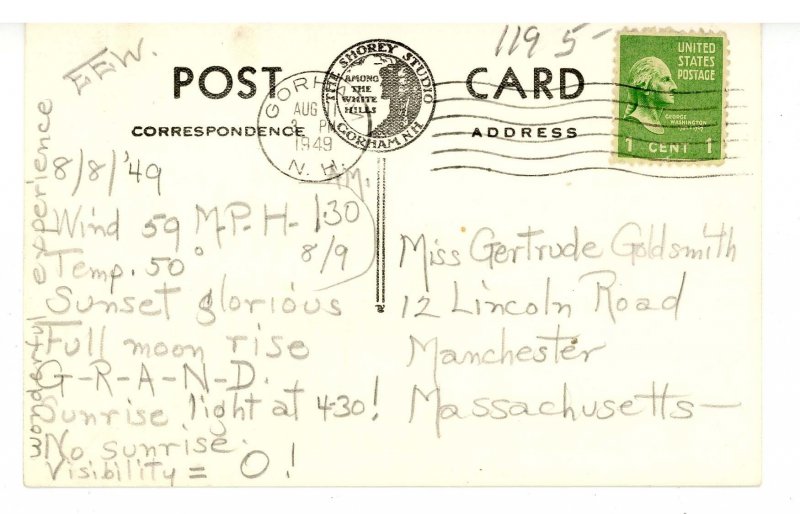 E.E.W.
1195-
POST CARD
CORRESPONDENCE
ADDRESS
THE SHOREY STUDIO
AMONG
THE
WHITE
HILLS
GORHAM N.H.
GORHAM
AUG
PM
1949
N. H.
UNITED
STATES
POSTAGE
GEORGE
WASHINGTON
1 CENT 1
8/8/'49
Wind 59 M.P.H- 1:30 A.M.
8/9
Temp. 50°
Sunset glorious
Full moon rise
G-R-A-N-D.
Sunrise light at 4:30!
No sunrise.
Visibility = O!
wonderful experience
Miss Gertrude Goldsmith
12 Lincoln Road
Manchester
Massachusetts-